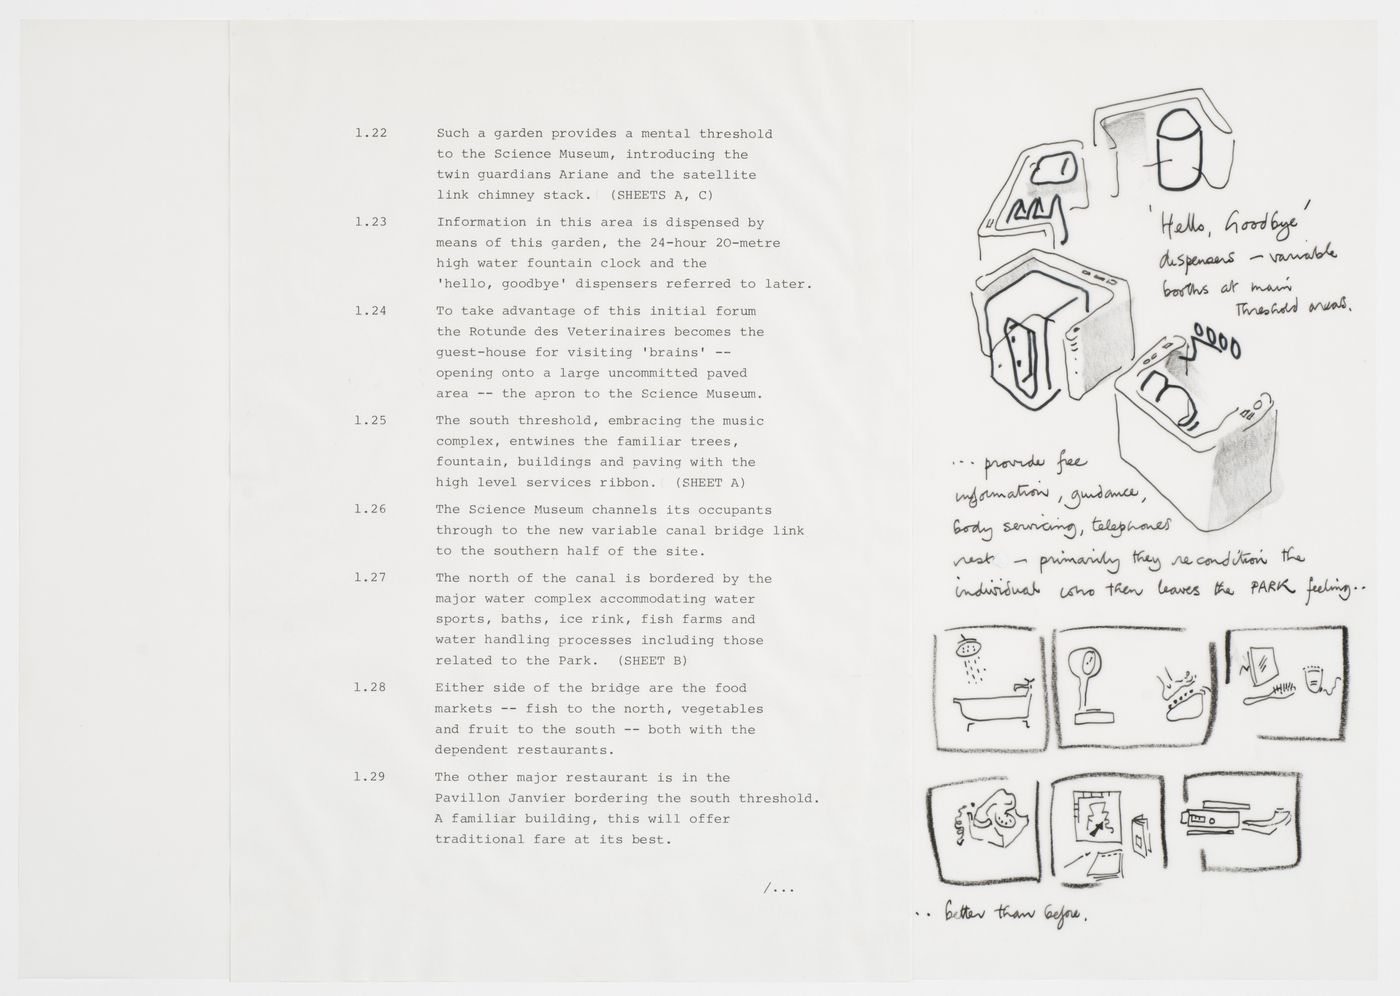 1.22 Such a garden provides a mental threshold
to the Science Museum, introducing the
twin guardians Ariane and the satellite
link chimney stack. (SHEETS A, C)
1.23 Information in this area is dispensed by
means of this garden, the 24-hour 20-metre
high water fountain clock and the
'hello, goodbye' dispensers referred to later.
1.24 To take advantage of this initial forum
the Rotunde des Veterinaires becomes the
guest-house for visiting 'brains' --
opening onto a large uncommitted paved
area -- the apron to the Science Museum.
1.25 The south threshold, embracing the music
complex, entwines the familiar trees,
fountain, buildings and paving with the
high level services ribbon. (SHEET A)
1.26 The Science Museum channels its occupants
through to the new variable canal bridge link
to the southern half of the site.
1.27 The north of the canal is bordered by the
major water complex accommodating water
sports, baths, ice rink, fish farms and
water handling processes including those
related to the Park. (SHEET B)
1.28 Either side of the bridge are the food
markets -- fish to the north, vegetables
and fruit to the south -- both with the
dependent restaurants.
1.29 The other major restaurant is in the
Pavillon Janvier bordering the south threshold.
A familiar building, this will offer
traditional fare at its best.
/...
'Hello, Goodbye'
dispensers – variable
booths at main
Threshold areas.
... provide free
information, guidance,
body servicing, telephones
rest – primarily they recondition the
individual who then leaves the PARK feeling..
.. better than before.